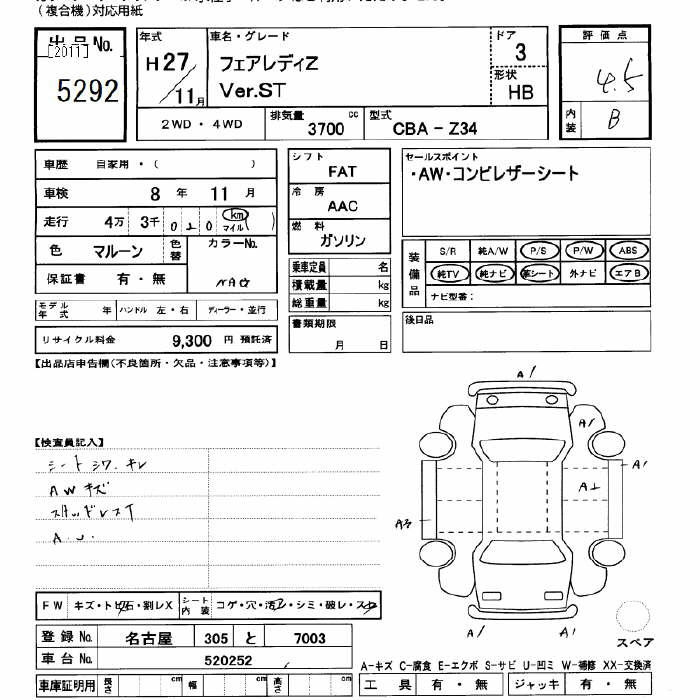 （複合機）対応用紙
出品No. [2011] 5292
年式 H27/11月
車名・グレード フェアレディZ Ver.ST
ドア 3
形状 HB
評価点 4.5
内装 B
2WD・4WD
排気量 3700 cc
型式 CBA-Z34
車歴 自家用・( )
車検 8年 11月
走行 4万 3千 0 2 0 km マイル ( )
色 マルーン 色替
カラーNo. NAG
保証書 有・無
モデル年式 年 ハンドル 左・右 ディーラー・並行
リサイクル料金 9,300 円 預託済
シフト FAT
冷房 AAC
燃料 ガソリン
乗車定員 名
積載量 kg
総重量 kg
書類期限 月 日
セールスポイント
・AW・コンビレザーシート
装備品 S/R 純A/W P/S P/W ABS
純TV 純ナビ 革シート 外ナビ エアB
ナビ型番：
後日品
【出品店申告欄(不良箇所・欠品・注意事項等)】
【検査員記入】
シート シワ.キレ
AWキズ
スタッドレスT
A.U.
A/
A/
A/
A/
A/
FW キズ・トビ石・割レX
シート内装 コゲ・穴・汚レ・シミ・破レ・スレ
登録No. 名古屋 305 と 7003
車台No. 520252
車庫証明用 長さ cm 幅 cm 高さ cm
スペア
A-キズ C-腐食 E-エクボ S-サビ U-凹ミ W-補修 XX-交換済
工具 有・無 ジャッキ 有・無